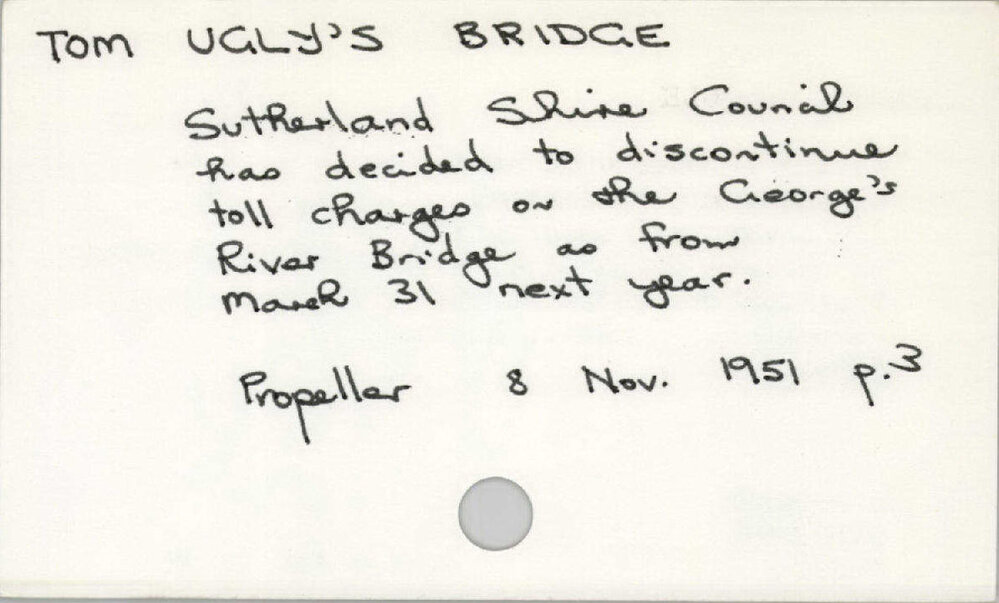 TOM UGLY'S BRIDGE
Sutherland Shire Council
has decided to discontinue
toll charges on the George's
River Bridge as from
March 31 next year.
Propeller 8 Nov. 1951 p.3